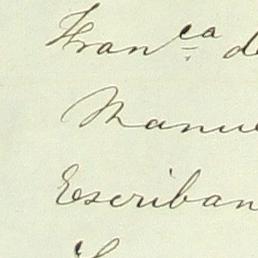 Fran.ca de
Manue
Escriban